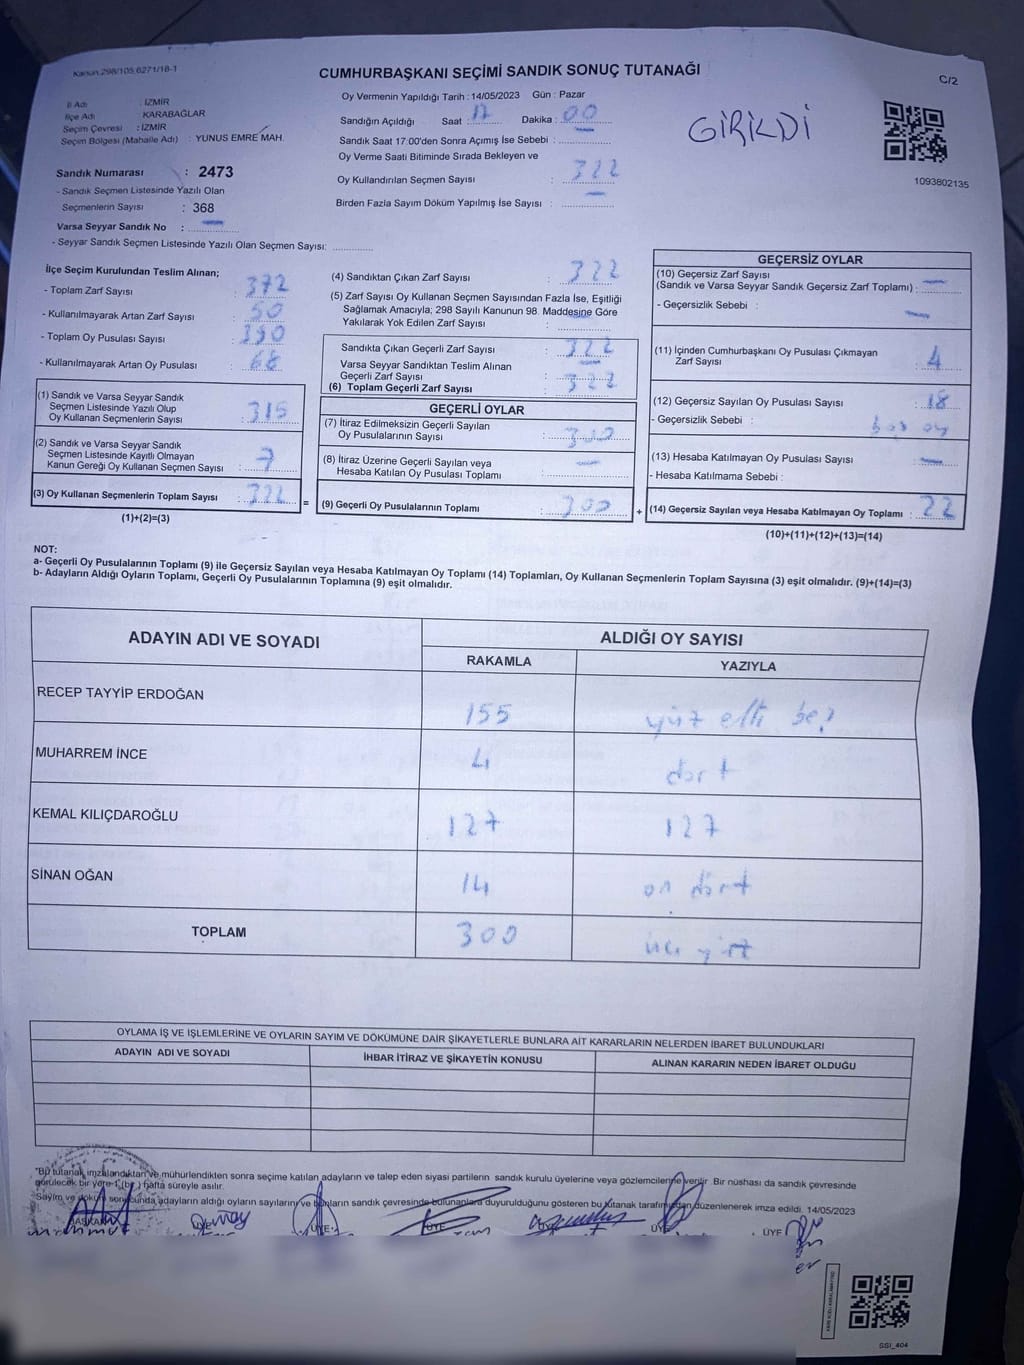 Kanun.298/105,6271/18-1
CUMHURBAŞKANI SEÇİMİ SANDIK SONUÇ TUTANAĞI
C/2
İl Adı : İZMİR
İlçe Adı : KARABAĞLAR
Seçim Çevresi : İZMİR
Seçim Bölgesi (Mahalle Adı) : YUNUS EMRE MAH.
Sandık Numarası : 2473
- Sandık Seçmen Listesinde Yazılı Olan
Seçmenlerin Sayısı : 368
Varsa Seyyar Sandık No : —
- Seyyar Sandık Seçmen Listesinde Yazılı Olan Seçmen Sayısı:
Oy Vermenin Yapıldığı Tarih : 14/05/2023 Gün : Pazar
Sandığın Açıldığı Saat : 17 Dakika : 00
Sandık Saat 17:00'den Sonra Açımış İse Sebebi : —
Oy Verme Saati Bitiminde Sırada Bekleyen ve
Oy Kullandırılan Seçmen Sayısı : 322
Birden Fazla Sayım Döküm Yapılmış İse Sayısı : —
GİRİLDİ
1093802135
İlçe Seçim Kurulundan Teslim Alınan;
- Toplam Zarf Sayısı : 372
- Kullanılmayarak Artan Zarf Sayısı : 50
- Toplam Oy Pusulası Sayısı : 390
- Kullanılmayarak Artan Oy Pusulası : 68
(1) Sandık ve Varsa Seyyar Sandık
Seçmen Listesinde Yazılı Olup
Oy Kullanan Seçmenlerin Sayısı : 315
(2) Sandık ve Varsa Seyyar Sandık
Seçmen Listesinde Kayıtlı Olmayan
Kanun Gereği Oy Kullanan Seçmen Sayısı : 7
(3) Oy Kullanan Seçmenlerin Toplam Sayısı : 322 =
(1)+(2)=(3)
(4) Sandıktan Çıkan Zarf Sayısı : 322
(5) Zarf Sayısı Oy Kullanan Seçmen Sayısından Fazla İse, Eşitliği
Sağlamak Amacıyla; 298 Sayılı Kanunun 98. Maddesine Göre
Yakılarak Yok Edilen Zarf Sayısı : —
Sandıkta Çıkan Geçerli Zarf Sayısı : 322
Varsa Seyyar Sandıktan Teslim Alınan
Geçerli Zarf Sayısı : —
(6) Toplam Geçerli Zarf Sayısı : 322
GEÇERLİ OYLAR
(7) İtiraz Edilmeksizin Geçerli Sayılan
Oy Pusulalarının Sayısı : 300
(8) İtiraz Üzerine Geçerli Sayılan veya
Hesaba Katılan Oy Pusulası Toplamı : —
(9) Geçerli Oy Pusulalarının Toplamı : 300 +
GEÇERSİZ OYLAR
(10) Geçersiz Zarf Sayısı
(Sandık ve Varsa Seyyar Sandık Geçersiz Zarf Toplamı) : —
- Geçersizlik Sebebi : —
(11) İçinden Cumhurbaşkanı Oy Pusulası Çıkmayan
Zarf Sayısı : 4
(12) Geçersiz Sayılan Oy Pusulası Sayısı : 18
- Geçersizlik Sebebi : boş oy
(13) Hesaba Katılmayan Oy Pusulası Sayısı : —
- Hesaba Katılmama Sebebi :
(14) Geçersiz Sayılan veya Hesaba Katılmayan Oy Toplamı : 22
(10)+(11)+(12)+(13)=(14)
NOT:
a- Geçerli Oy Pusulalarının Toplamı (9) ile Geçersiz Sayılan veya Hesaba Katılmayan Oy Toplamı (14) Toplamları, Oy Kullanan Seçmenlerin Toplam Sayısına (3) eşit olmalıdır. (9)+(14)=(3)
b- Adayların Aldığı Oyların Toplamı, Geçerli Oy Pusulalarının Toplamına (9) eşit olmalıdır.
ADAYIN ADI VE SOYADI
ALDIĞI OY SAYISI
RAKAMLA YAZIYLA
RECEP TAYYİP ERDOĞAN 155 yüz elli beş
MUHARREM İNCE 4 dört
KEMAL KILIÇDAROĞLU 127 127
SİNAN OĞAN 14 on dört
TOPLAM 300 üç yüz
OYLAMA İŞ VE İŞLEMLERİNE VE OYLARIN SAYIM VE DÖKÜMÜNE DAİR ŞİKAYETLERLE BUNLARA AİT KARARLARIN NELERDEN İBARET BULUNDUKLARI
ADAYIN ADI VE SOYADI İHBAR İTİRAZ VE ŞİKAYETİN KONUSU ALINAN KARARIN NEDEN İBARET OLDUĞU
"Bu tutanak imzalandıktan ve mühürlendikten sonra seçime katılan adayların ve talep eden siyasi partilerin sandık kurulu üyelerine veya gözlemcilerine verilir. Bir nüshası da sandık çevresinde
görülecek bir yere 1 (bir) hafta süreyle asılır.
Sayım ve döküm sonucunda adayların aldığı oyların sayılarını ve bunların sandık çevresinde bulunanlara duyurulduğunu gösteren bu tutanak tarafımızdan düzenlenerek imza edildi. 14/05/2023
BAŞKAN ÜYE ÜYE ÜYE ÜYE ÜYE ÜYE
SSI_404